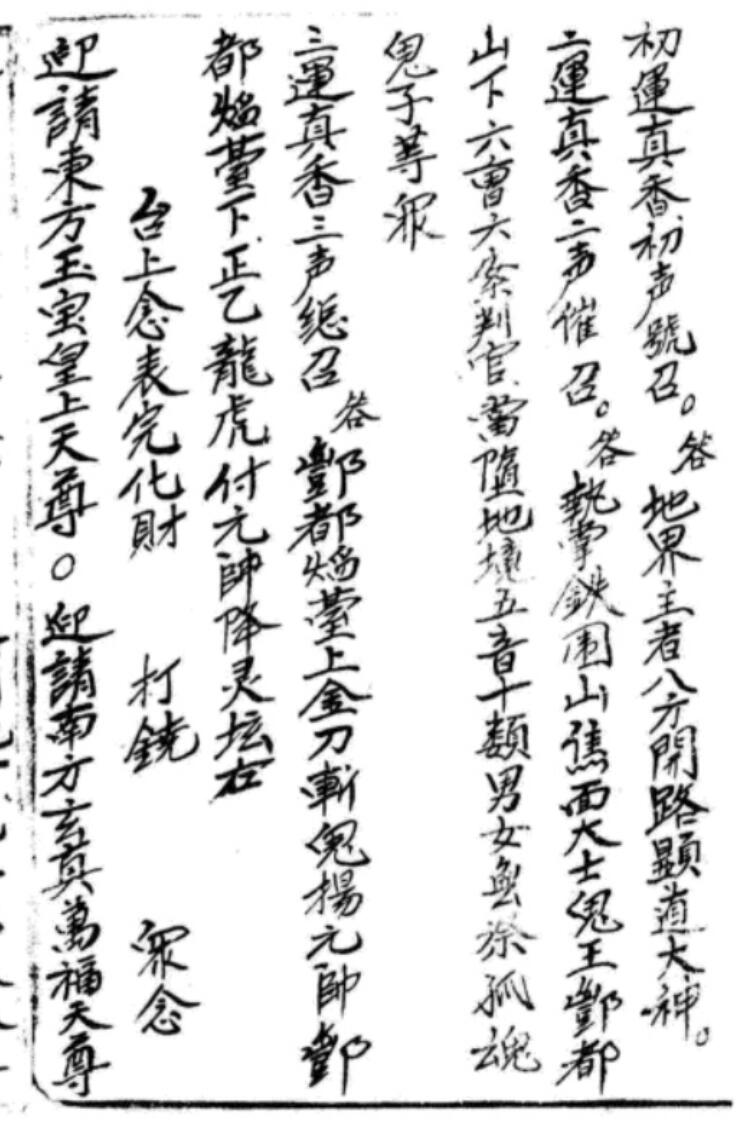 初運真香初声號召。答 地界主者八方開路顕道大神。
二運真香二声催召。答 執掌鉄囲山焦面大士鬼王酆都
山下六曹六案判官當墮地境五音十類男女無祭孤魂
鬼子等眾
三運真香三声総召 答 酆都焰臺上金刀斬鬼揚元帥酆
都焰臺下正乙龍虎付元帥降灵坛右
台上念表完化財 打鐃 眾念
迎請東方玉宝皇上天尊。迎請南方玄真萬福天尊